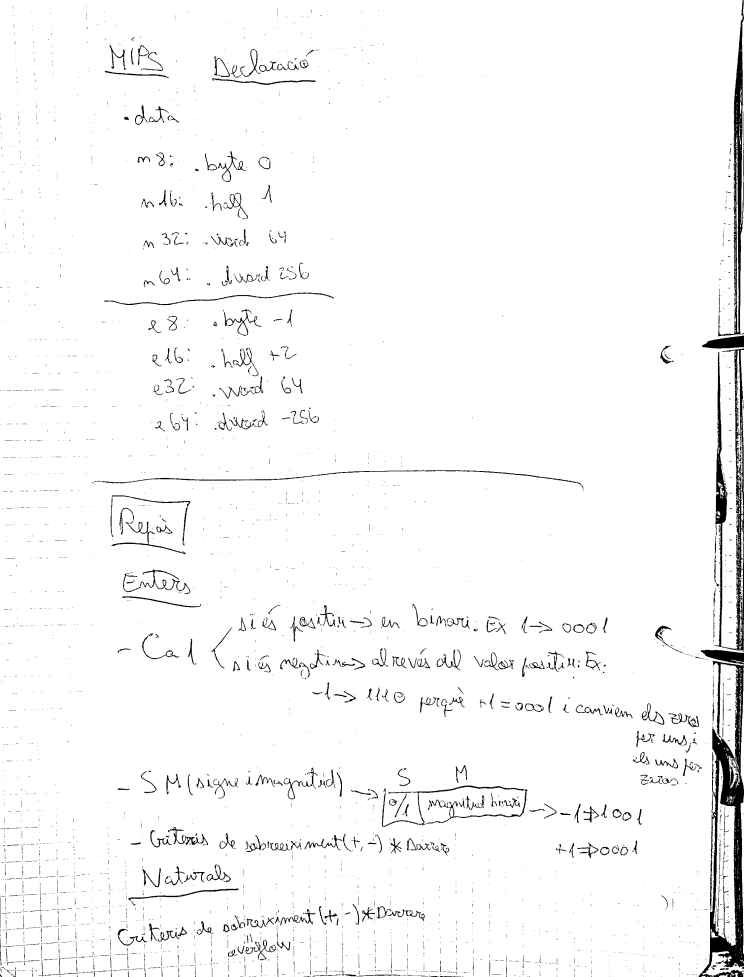 MIPS Declaració
.data
n8: .byte 0
n16: .half 1
n32: .word 64
n64: .dword 256
e8: .byte -1
e16: .half +2
e32: .word 64
e64: .dword -256
Repàs
Enters
- Ca1
si és positiu → en binari. Ex 1 → 0001
si és negatiu → al revés del valor positiu: Ex:
-1 → 1110 perquè +1 = 0001 i canviem els zeros
per uns, i
els uns per
zeros.
- SM (signe i magnitud) →
S M
0/1 magnitud → -1 ⇒ 1001
+1 ⇒ 0001
- Criteris de sobreeiximent (+, -) * Darrere
Naturals
Criteris de sobreiximent (+, -) * Darrere
overflow